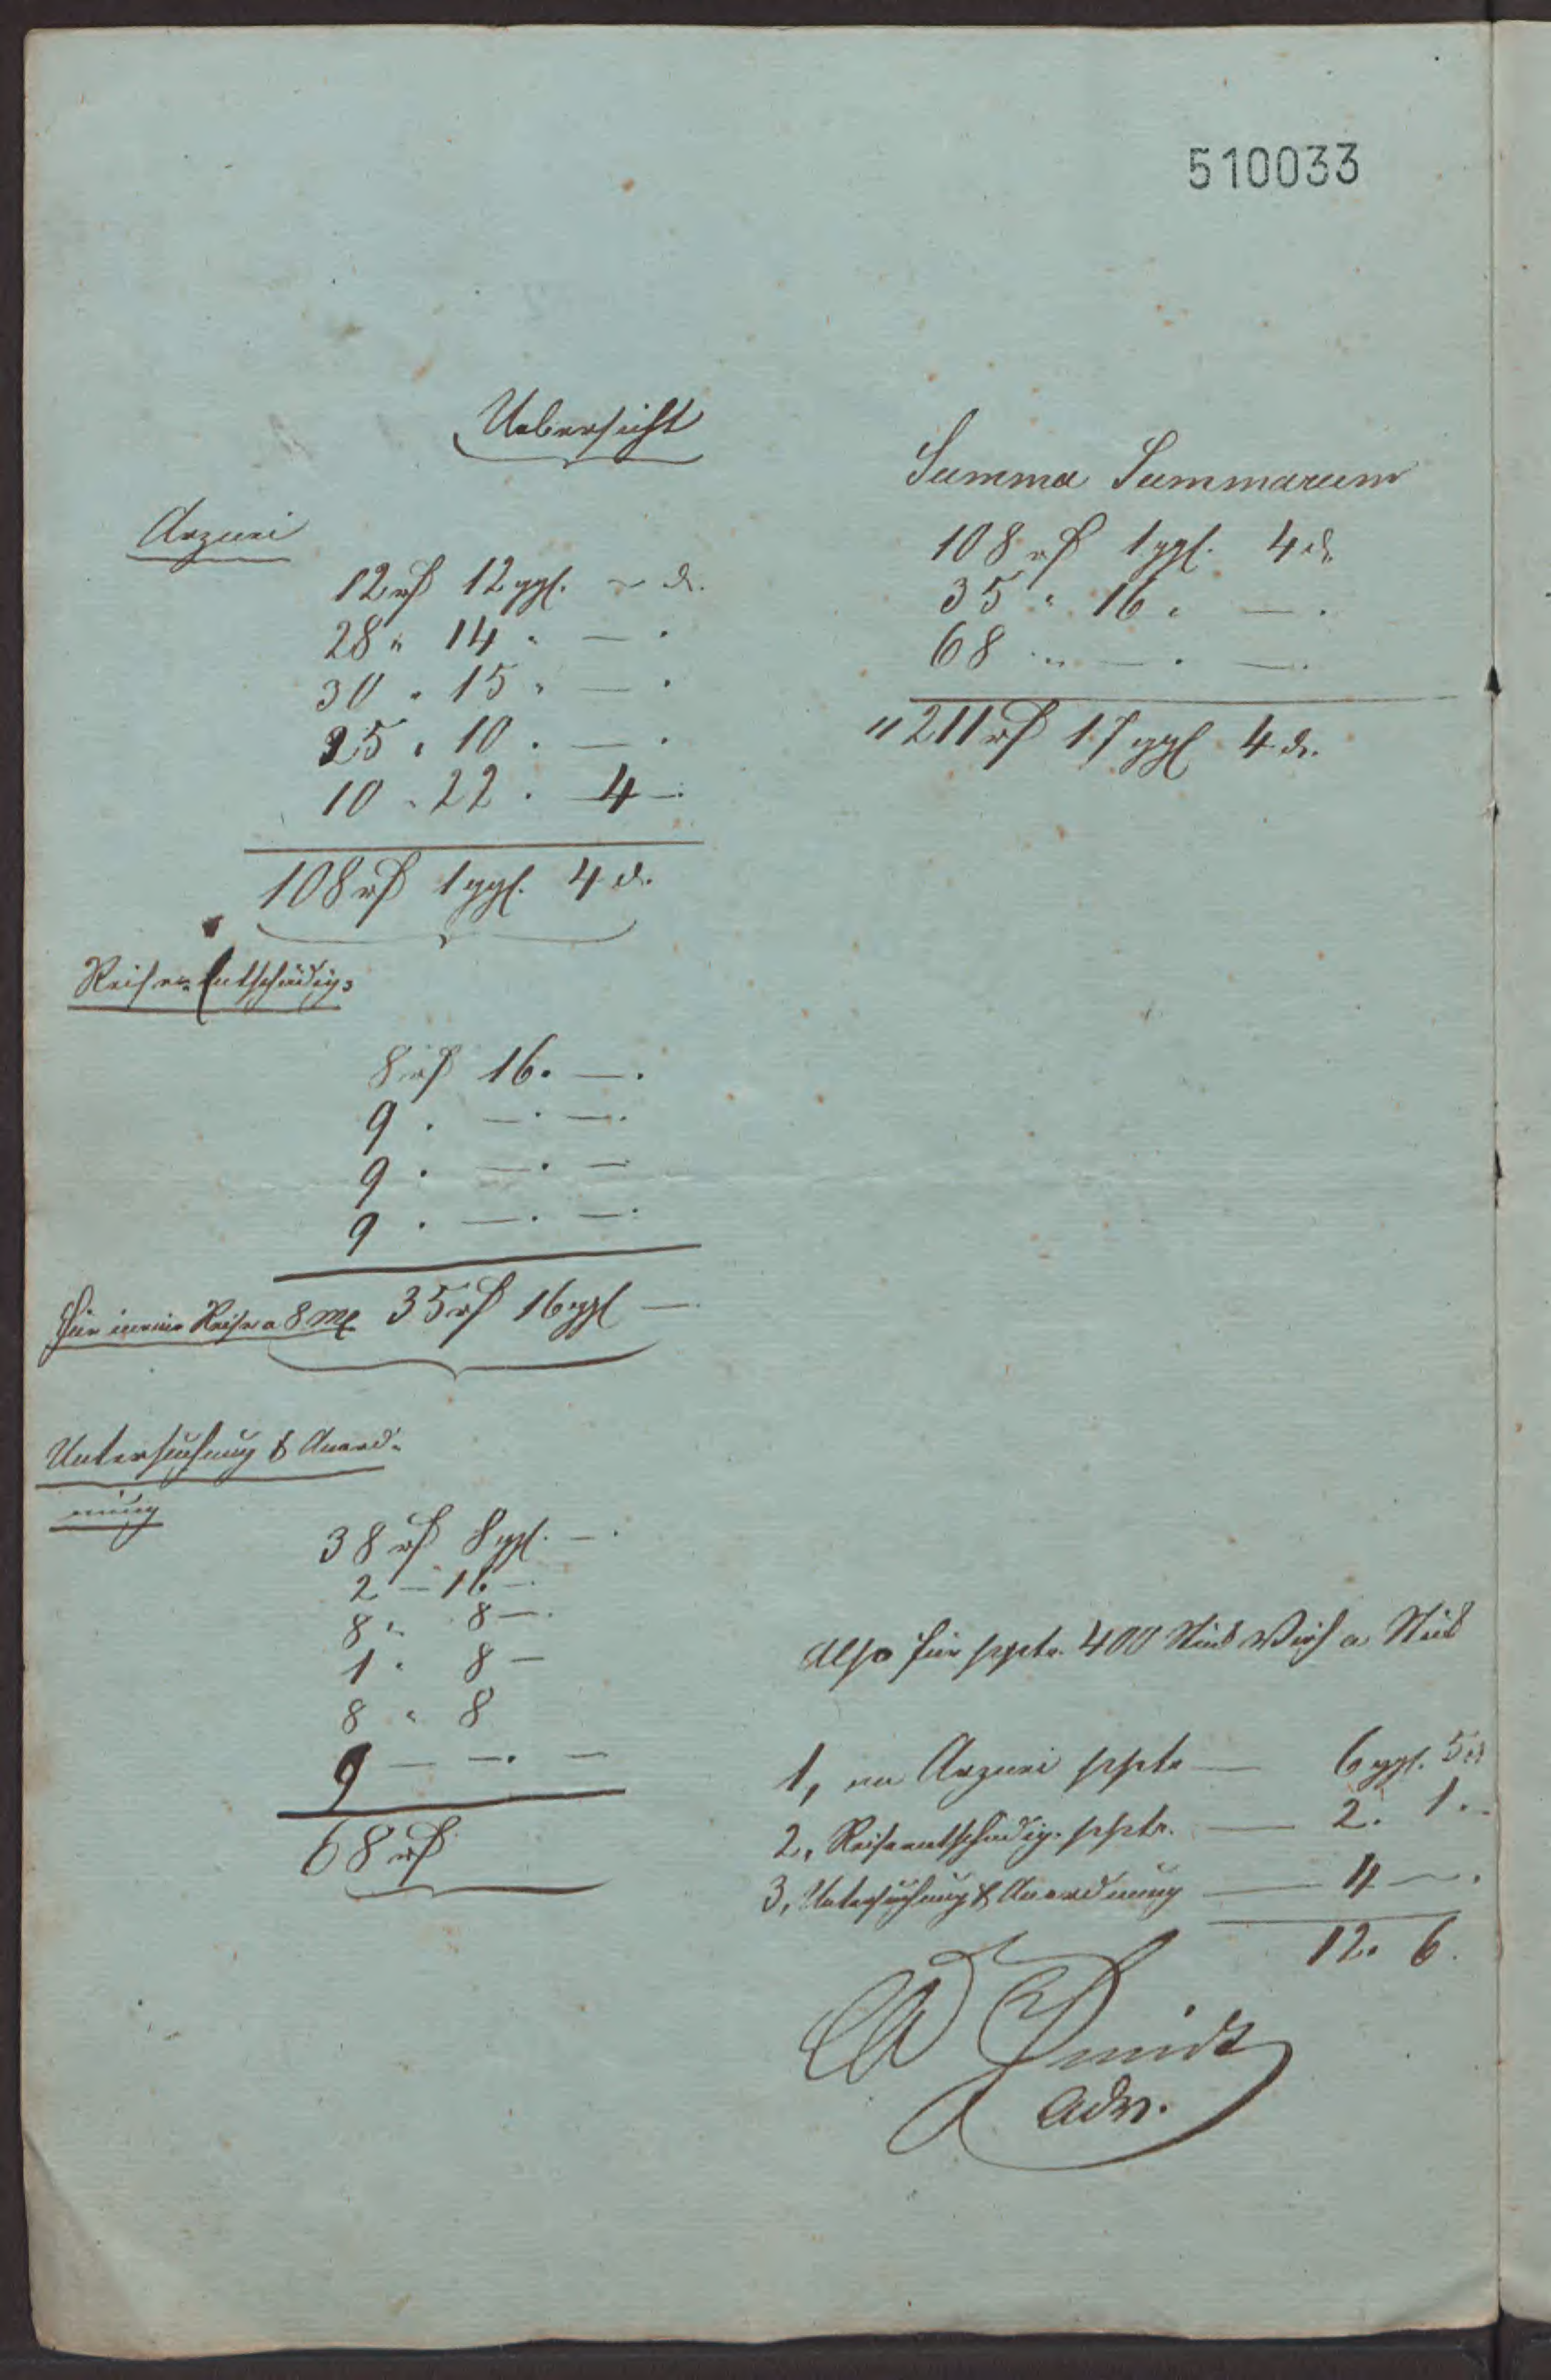 510033
Uebersicht
Arzuei
12 rß 12 ggl. ~ d.
28 " 14 " — .
30 " 15 " — .
25 " 10 . — .
10 " 22 . 4 — .
108 rß 1 ggl. 4 d.
Reise-Entschädig:
8 rß 16 . — .
9 . — . — .
9 . — . —
9 . — . — .
für meine Reise a 8 mℓ 35 rß 16 ggl —
Untersuchung & Anord-
nung
38 rß 8 ggl. — .
2 — 16 — .
8 " 8 — .
1 " 8 —
8 " 8
9 — — . —
68 rß
Summa Summarum
108 rß 1 ggl. 4 d.
35 " 16 " — .
68 " — . — .
" 211 rß 17 ggl 4 d.
Also für ppter. 400 Stück Vieh a Stück
1, an Arzuei ppter — 6 ggl. 5 d
2, Reiseentschädig. ppter. — 2 . 1 . -
3, Untersuchung & Anordnung — 4 — .
12 . 6 .
Schmidt